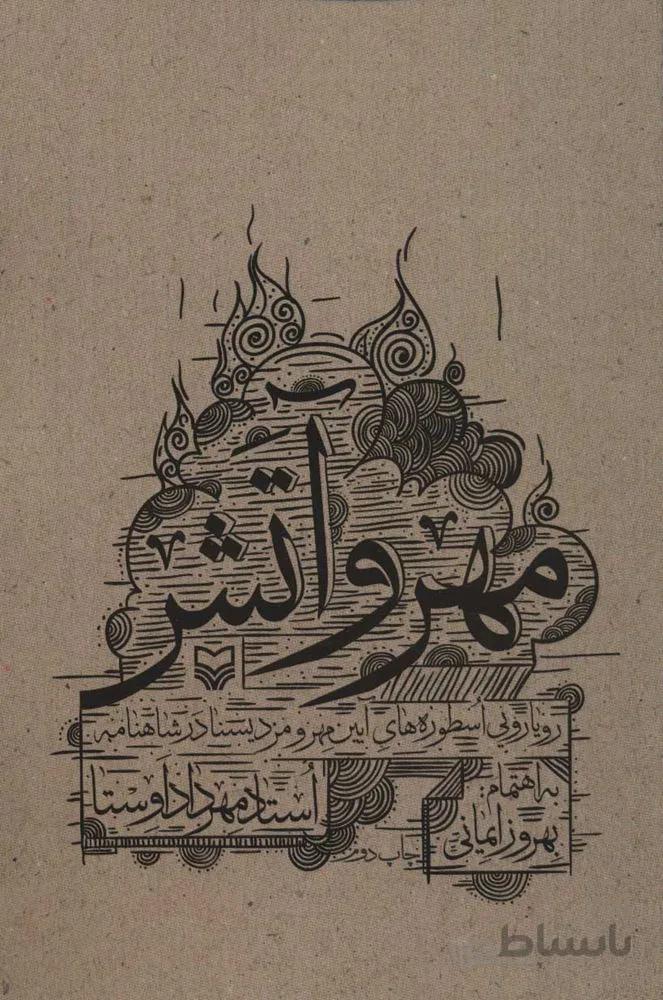 مهر و آتش
رویارویی اسطوره‌های آیین مهر و مزدیسنا در شاهنامه
به اهتمام:
بهروز ایمانی
استاد مهرداد اوستا
چاپ دوم
باسلام